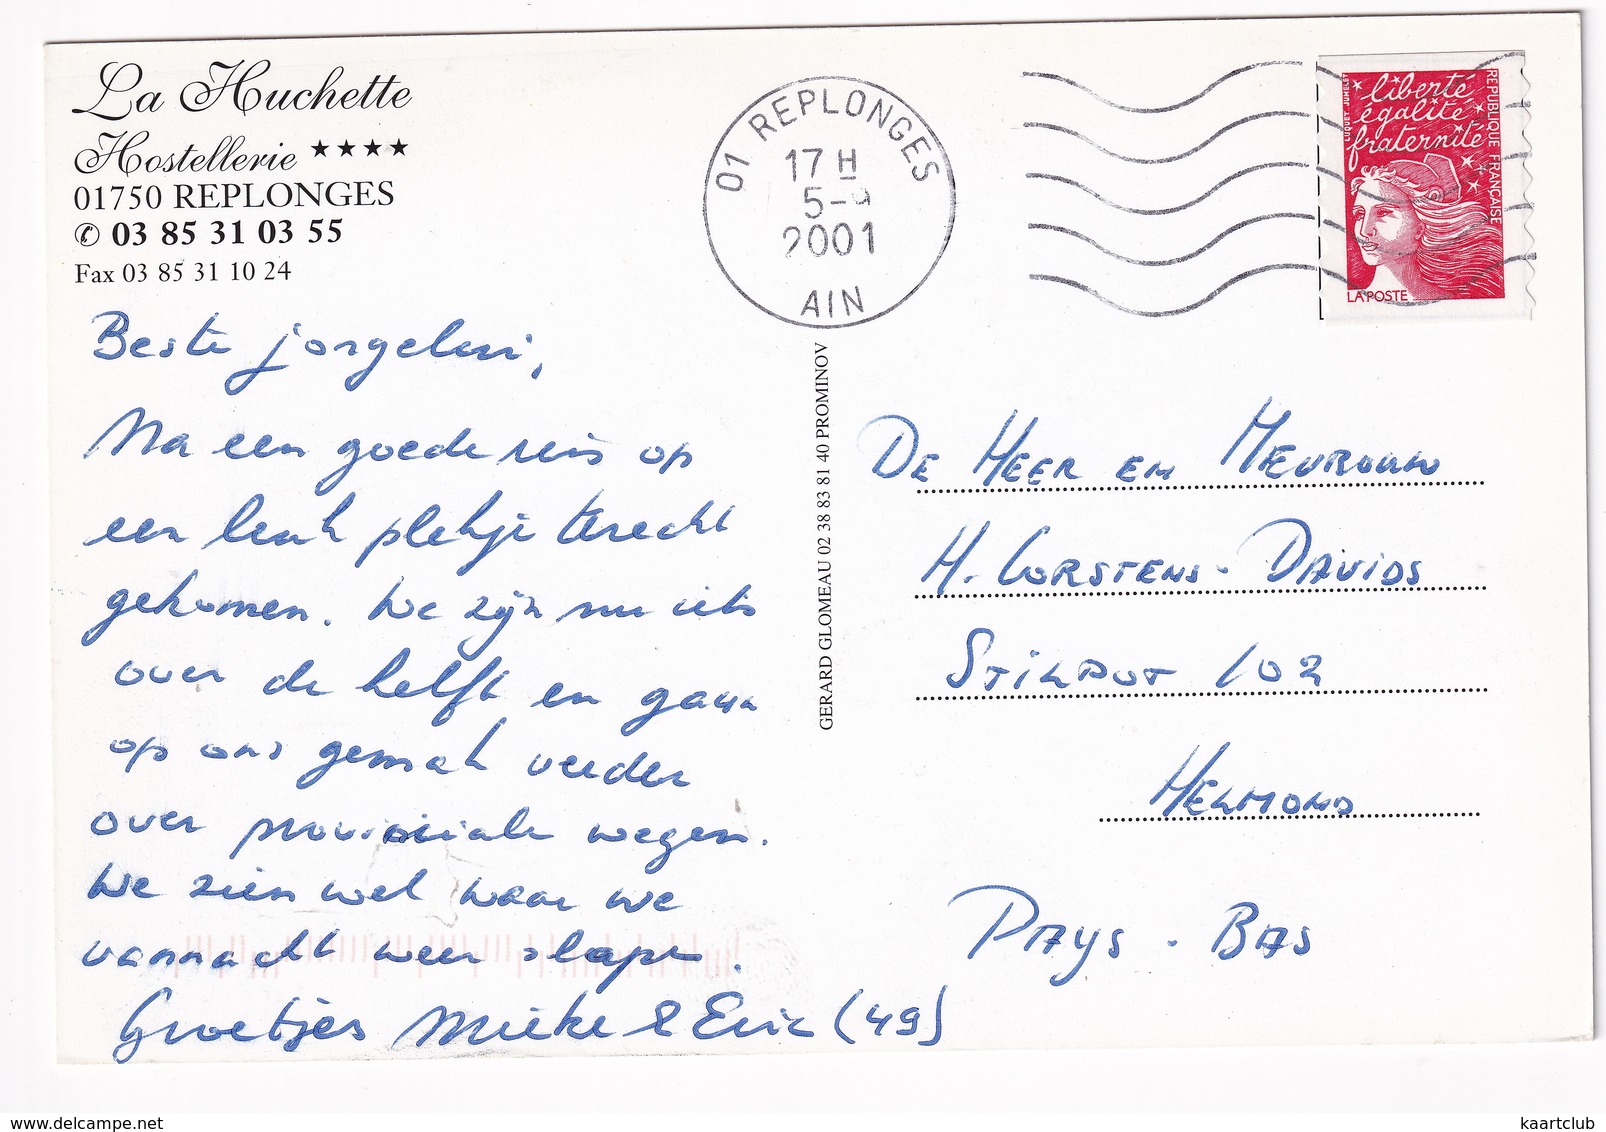 La Huchette
Hostellerie ★★★★
01750 REPLONGES
✆ 03 85 31 03 55
Fax 03 85 31 10 24
Beste jongelui,
Na een goede reis op
een leuk plekje terecht
gekomen. We zijn nu iets
over de helft en gaan
op ons gemak verder
over provinciale wegen.
We zien wel waar we
vannacht weer slapen.
Groetjes Mieke & Eric (49)
01 REPLONGES
17 H
5-9
2001
AIN
liberté
égalité
fraternité
REPUBLIQUE FRANÇAISE
LA POSTE
GERARD GLOMEAU 02 38 83 81 40 PROMINOV
DE HEER EN MEVROUW
H. CORSTENS-DAVIDS
STILPOT 102
HELMOND
PAYS-BAS
delcampe.net
kaartclub